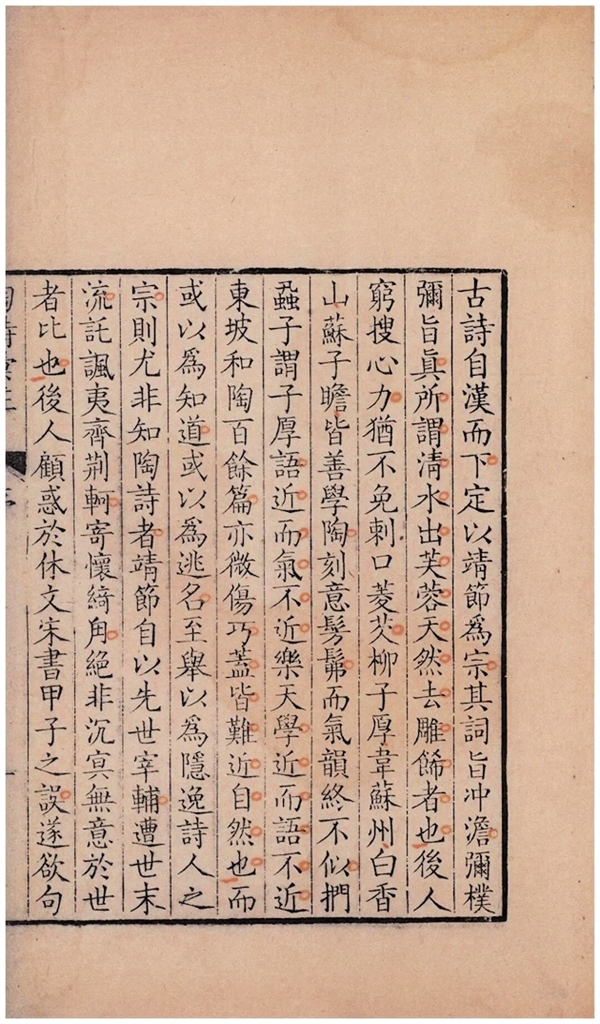 古詩自漢而下定以靖節爲宗其詞旨冲澹彌樸
彌旨眞所謂清水出芙蓉天然去雕餙者也後人
窮搜心力猶不免刺口菱芡柳子厚韋蘇州白香
山蘇子瞻皆善學陶刻意髣髴而氣韻終不似捫
蝨子謂子厚語近而氣不近樂天學近而語不近
東坡和陶百餘篇亦微傷巧蓋皆難近自然也而
或以爲知道或以爲逃名至舉以爲隱逸詩人之
宗則尤非知陶詩者靖節自以先世宰輔遭世末
流託諷夷齊荆軻寄懷綺角絕非沉冥無意於世
者比也後人顧惑於休文宋書甲子之誤遂欲句